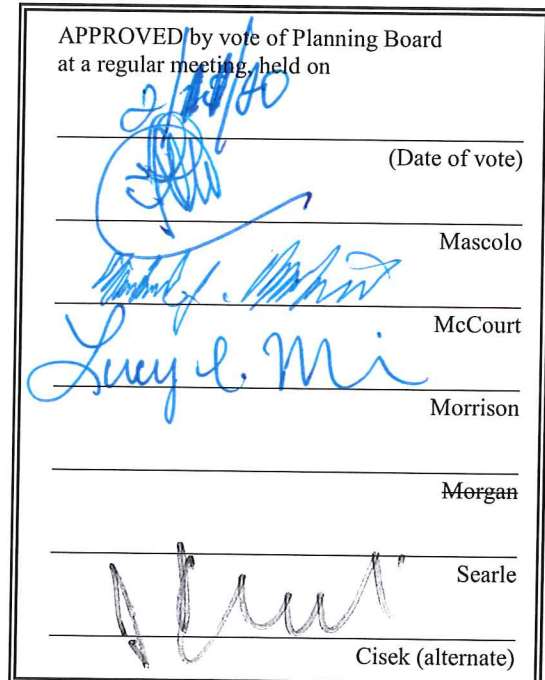 APPROVED by vote of Planning Board
at a regular meeting, held on
(Date of vote)
Mascolo
McCourt
Lucy C. M
Morrison
Morgan
Searle
Cisek (alternate)